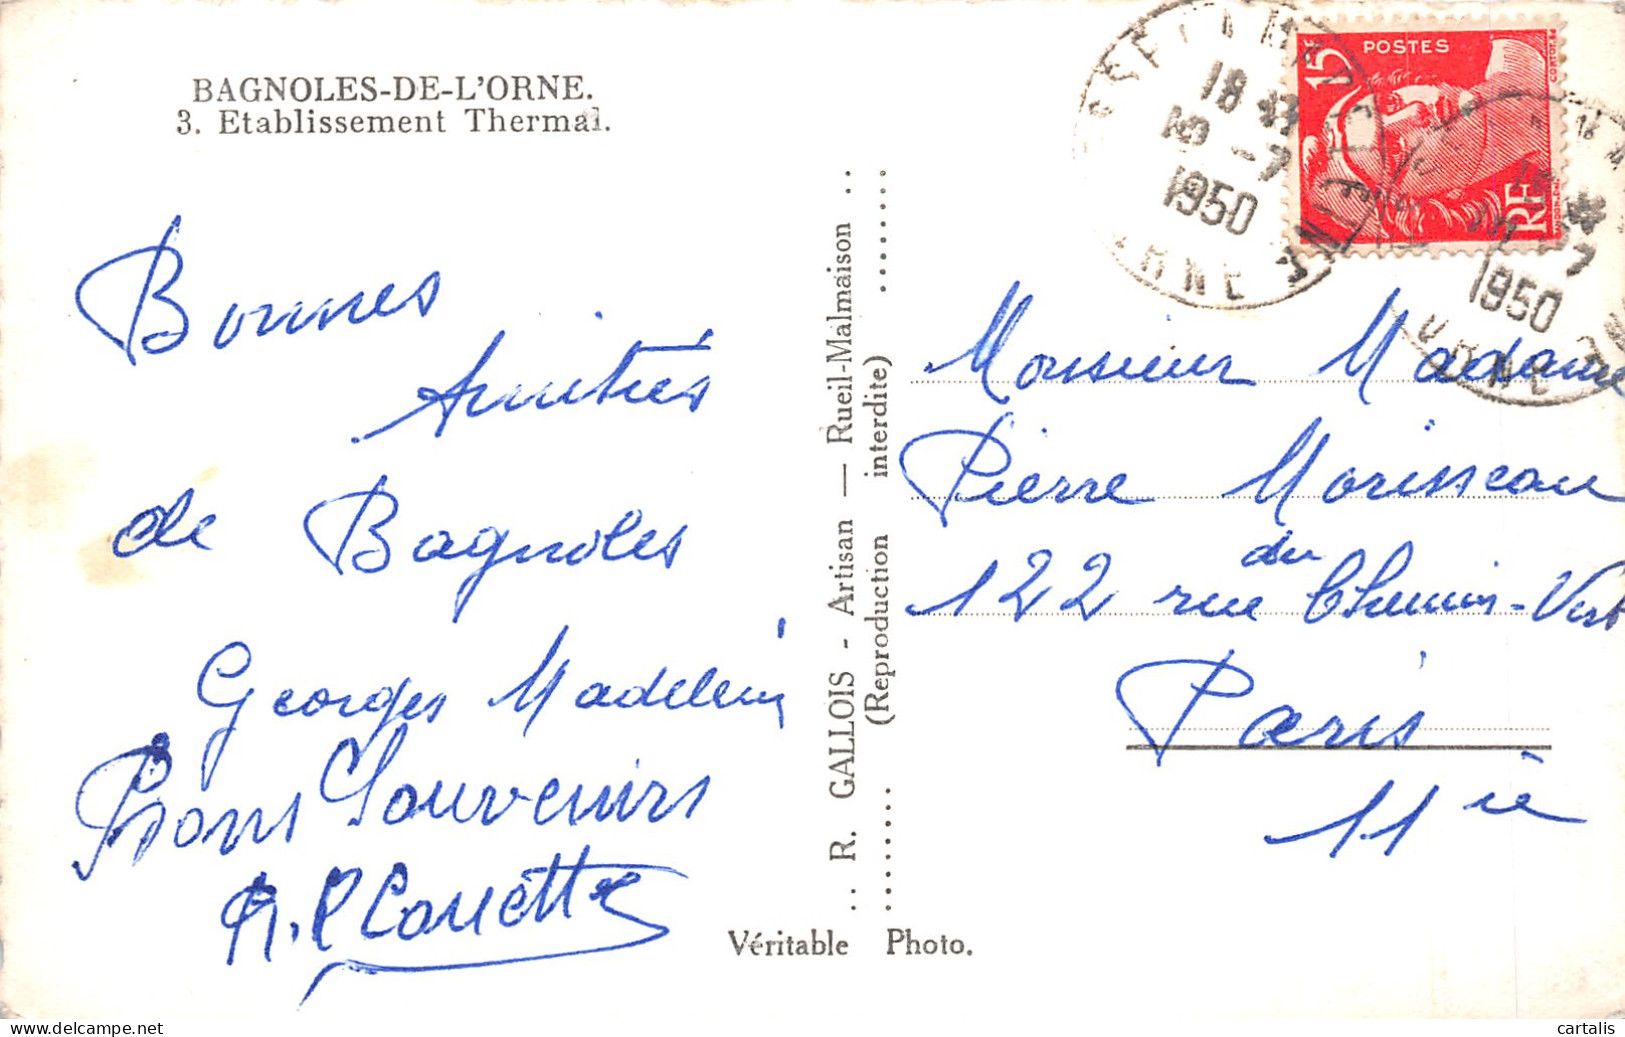 BAGNOLES-DE-L'ORNE.
3. Etablissement Thermal.
Bonnes
Amitiés
de Bagnoles
Georges Madelein
Bons Souvenirs
.. R. GALLOIS - Artisan — Rueil-Malmaison ..
(Reproduction interdite)
Véritable Photo.
15F POSTES
RF
18
1950
ORNE
1950
ORNE
Monsieur Madame
Pierre Morisseau
122 rue du Chemin-Vert
Paris
11 ie
delcampe.net
cartalis